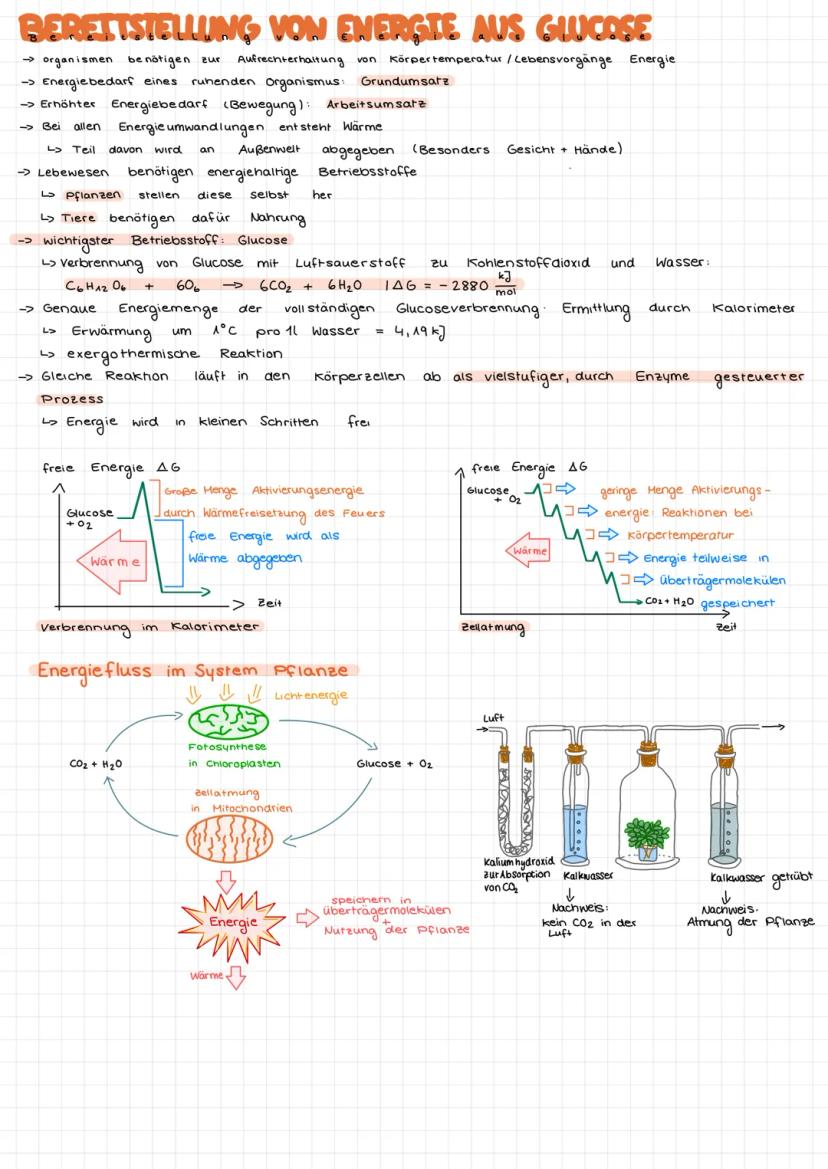 BEREITSTELLUNG VON ENERGIE AUS GLUCOSE
Bereitstellung von Energie aus Glucose
-> organismen benötigen zur Aufrechterhaltung von Körpertemperatur / Lebensvorgänge Energie
-> Energiebedarf eines ruhenden Organismus: Grundumsatz
-> Erhöhter Energiebedarf (Bewegung): Arbeitsumsatz
-> Bei allen Energieumwandlungen entsteht Wärme
↳ Teil davon wird an Außenwelt abgegeben (Besonders Gesicht + Hände)
-> Lebewesen benötigen energiehaltige Betriebsstoffe
↳ Pflanzen stellen diese selbst her
↳ Tiere benötigen dafür Nahrung
-> wichtigster Betriebsstoff: Glucose
↳ Verbrennung von Glucose mit Luftsauerstoff zu Kohlenstoffdioxid und Wasser:
C₆H₁₂O₆ + 6O₆ -> 6CO₂ + 6H₂O | ΔG = -2880 kJ/mol
-> Genaue Energiemenge der vollständigen Glucoseverbrennung: Ermittlung durch Kalorimeter
↳ Erwärmung um 1°C pro 1l Wasser = 4,19 kJ
↳ exergothermische Reaktion
-> Gleiche Reaktion läuft in den Körperzellen ab als vielstufiger, durch Enzyme gesteuerter
Prozess
↳ Energie wird in kleinen Schritten frei
freie Energie ΔG
Große Menge Aktivierungsenergie
durch Wärmefreisetzung des Feuers
Glucose
+ O₂
freie Energie wird als
Wärme abgegeben
Wärme
Zeit
Verbrennung im Kalorimeter
freie Energie ΔG
Glucose
+ O₂
geringe Menge Aktivierungs-
energie: Reaktionen bei
Körpertemperatur
Wärme
Energie teilweise in
Überträgermolekülen
CO₂ + H₂O gespeichert
Zellatmung
Zeit
Energiefluss im System Pflanze
Lichtenergie
Fotosynthese
in Chloroplasten
CO₂ + H₂O
Glucose + O₂
Zellatmung
in Mitochondrien
Energie
speichern in
Überträgermolekülen
+
Nutzung der Pflanze
Wärme
Luft
Kaliumhydroxid
zur Absorption
von CO₂
Kalkwasser
Nachweis:
kein CO₂ in der
Luft
Kalkwasser getrübt
Nachweis.
Atmung der Pflanze